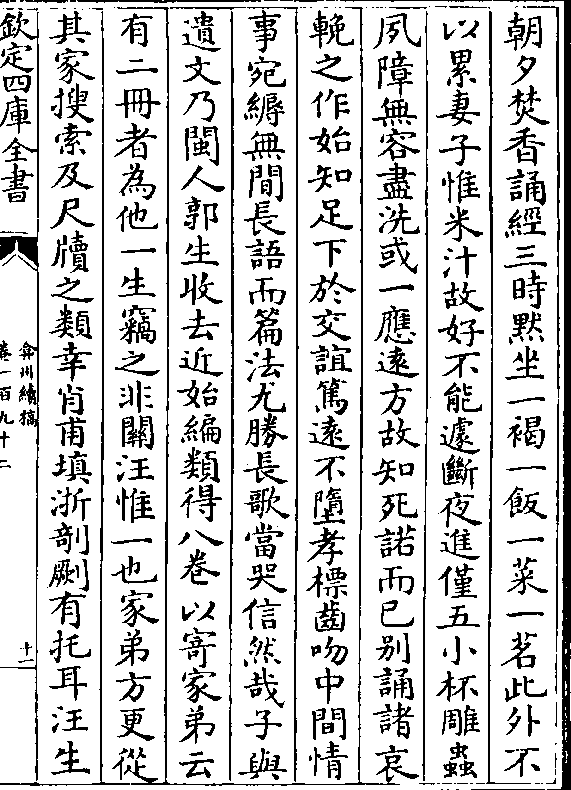 朝夕焚香誦經三時黙坐一褐一飯一菜一茗此外不
以累妻子惟米汁故好不能遽斷夜進僅五小杯雕蟲
夙障無容盡洗或一應逺方故知死諾而已别誦諸哀
輓之作始知足下於交誼篤逺不墮孝標齒吻中間情
事宛縟無間長語而篇法尤勝長歌當哭信然哉子與
遺文乃閩人郭生收去近始編類得八巻以寄家弟云
有二冊者為他一生竊之非闗汪惟一也家弟方更從
其家搜索及尺牘之類幸肖甫填浙剞劂有托耳汪生
欽定四庫全書
弇州續稿
巻一百九十二
十二